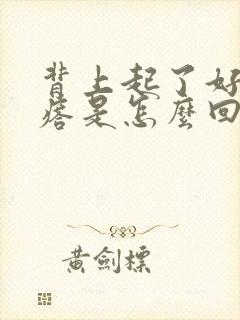 背上起了好
瘩是怎麼回
黃劍標